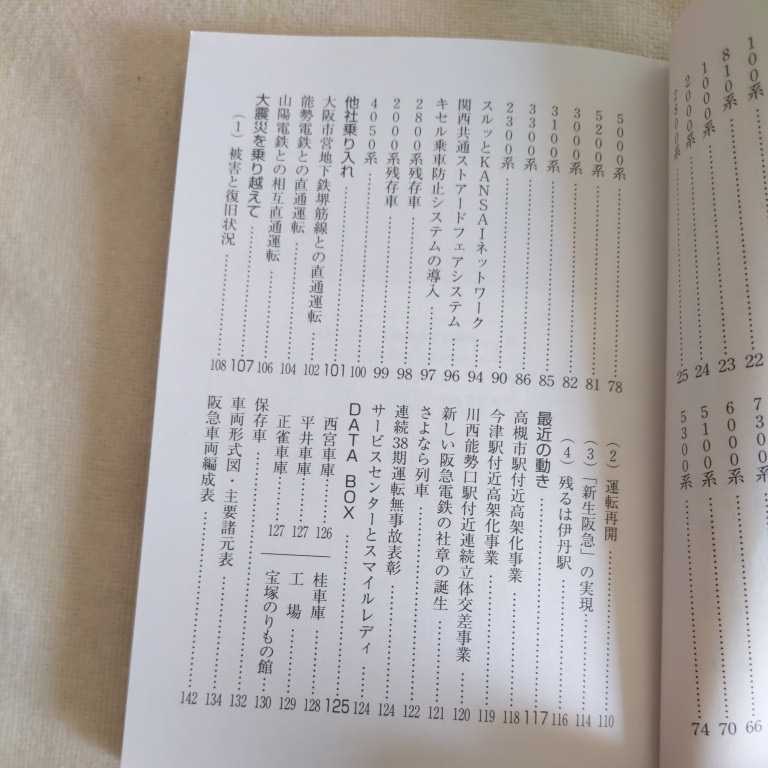 100系……22
810系……23
1000系……24
2000系……25
6000系……70
5100系……74
5300系
5000系……78
5200系……81
3000系……82
3100系……85
3300系……86
2300系……90
スルッとKANSAIネットワーク……94
関西共通ストアードフェアシステム……96
キセル乗車防止システムの導入……97
2800系残存車……98
2000系残存車……99
4050系……100
他社乗り入れ……101
大阪市営地下鉄堺筋線との直通運転……102
能勢電鉄との直通運転……104
山陽電鉄との相互直通運転……106
大震災を乗り越えて……107
(1) 被害と復旧状況……108
(2) 運転再開……110
(3)「新生阪急」の実現……114
(4) 残るは伊丹駅……116
最近の動き……117
高槻市駅付近高架化事業……118
今津駅付近高架化事業……119
川西能勢口駅付近連続立体交差事業……120
新しい阪急電鉄の社章の誕生……121
さよなら列車……122
連続38期運転無事故表彰……124
サービスセンターとスマイルレディ……124
DATA BOX……125
西宮車庫……126
平井車庫……127
正雀車庫……127
桂車庫……128
工場……129
宝塚のりもの館……130
保存車……132
車両形式図・主要諸元表……134
阪急車両編成表……142